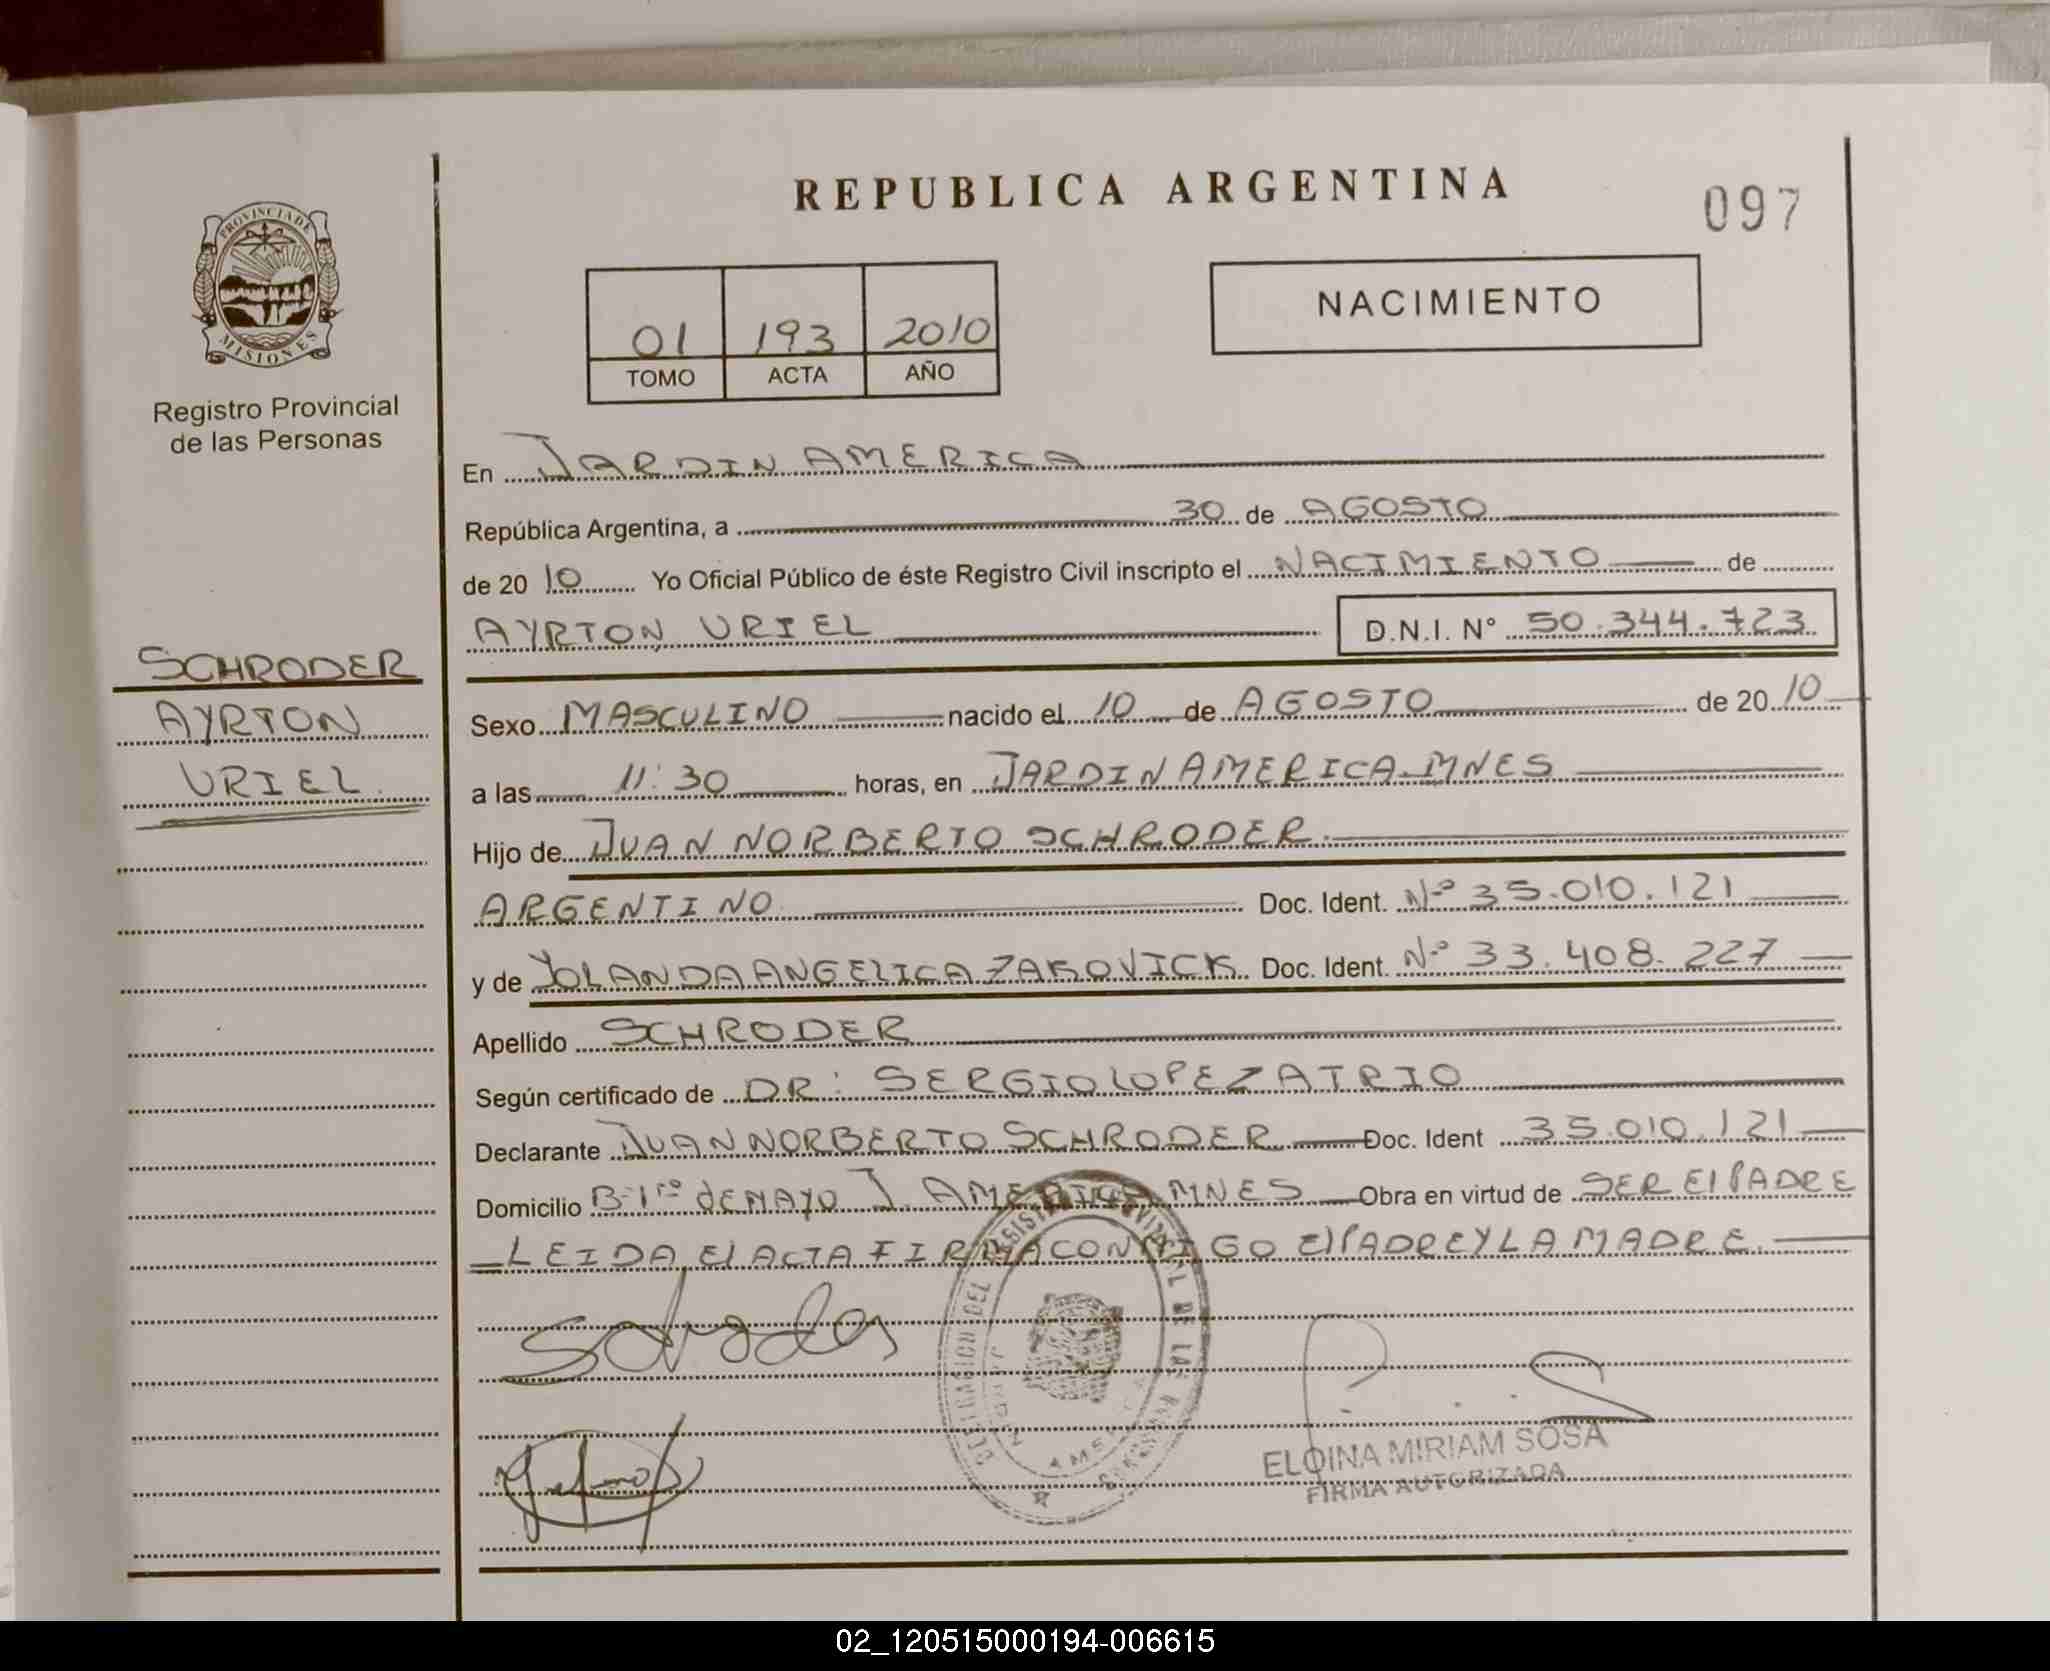 REPUBLICA ARGENTINA
097
PROVINCIA DE
MISIONES
Registro Provincial
de las Personas
01 193 2010
TOMO ACTA AÑO
NACIMIENTO
SCHRODER
AYRTON
URIEL
En JARDIN AMERICA
República Argentina, a 30 de AGOSTO
de 20 10 Yo Oficial Público de éste Registro Civil inscripto el NACIMIENTO de
AYRTON URIEL D.N.I. N° 50.344.723
Sexo MASCULINO nacido el 10 de AGOSTO de 20 10
a las 11:30 horas, en JARDIN AMERICA-MNES
Hijo de JUAN NORBERTO SCHRODER
ARGENTINO Doc. Ident. Nº 35.010.121
y de YOLANDA ANGELICA ZAKOVICK Doc. Ident. Nº 33.408.227
Apellido SCHRODER
Según certificado de DR: SERGIO LOPEZ ATRIO
Declarante JUAN NORBERTO SCHRODER Doc. Ident 35.010.121
Domicilio Bº 1ro dE MAYO J. AMERICA MNES Obra en virtud de SER El PADRE
LEIDA El ACTA FIRMA CONMIGO El PADRE Y LA MADRE.
ELOINA MIRIAM SOSA
FIRMA AUTORIZADA
02_120515000194-006615